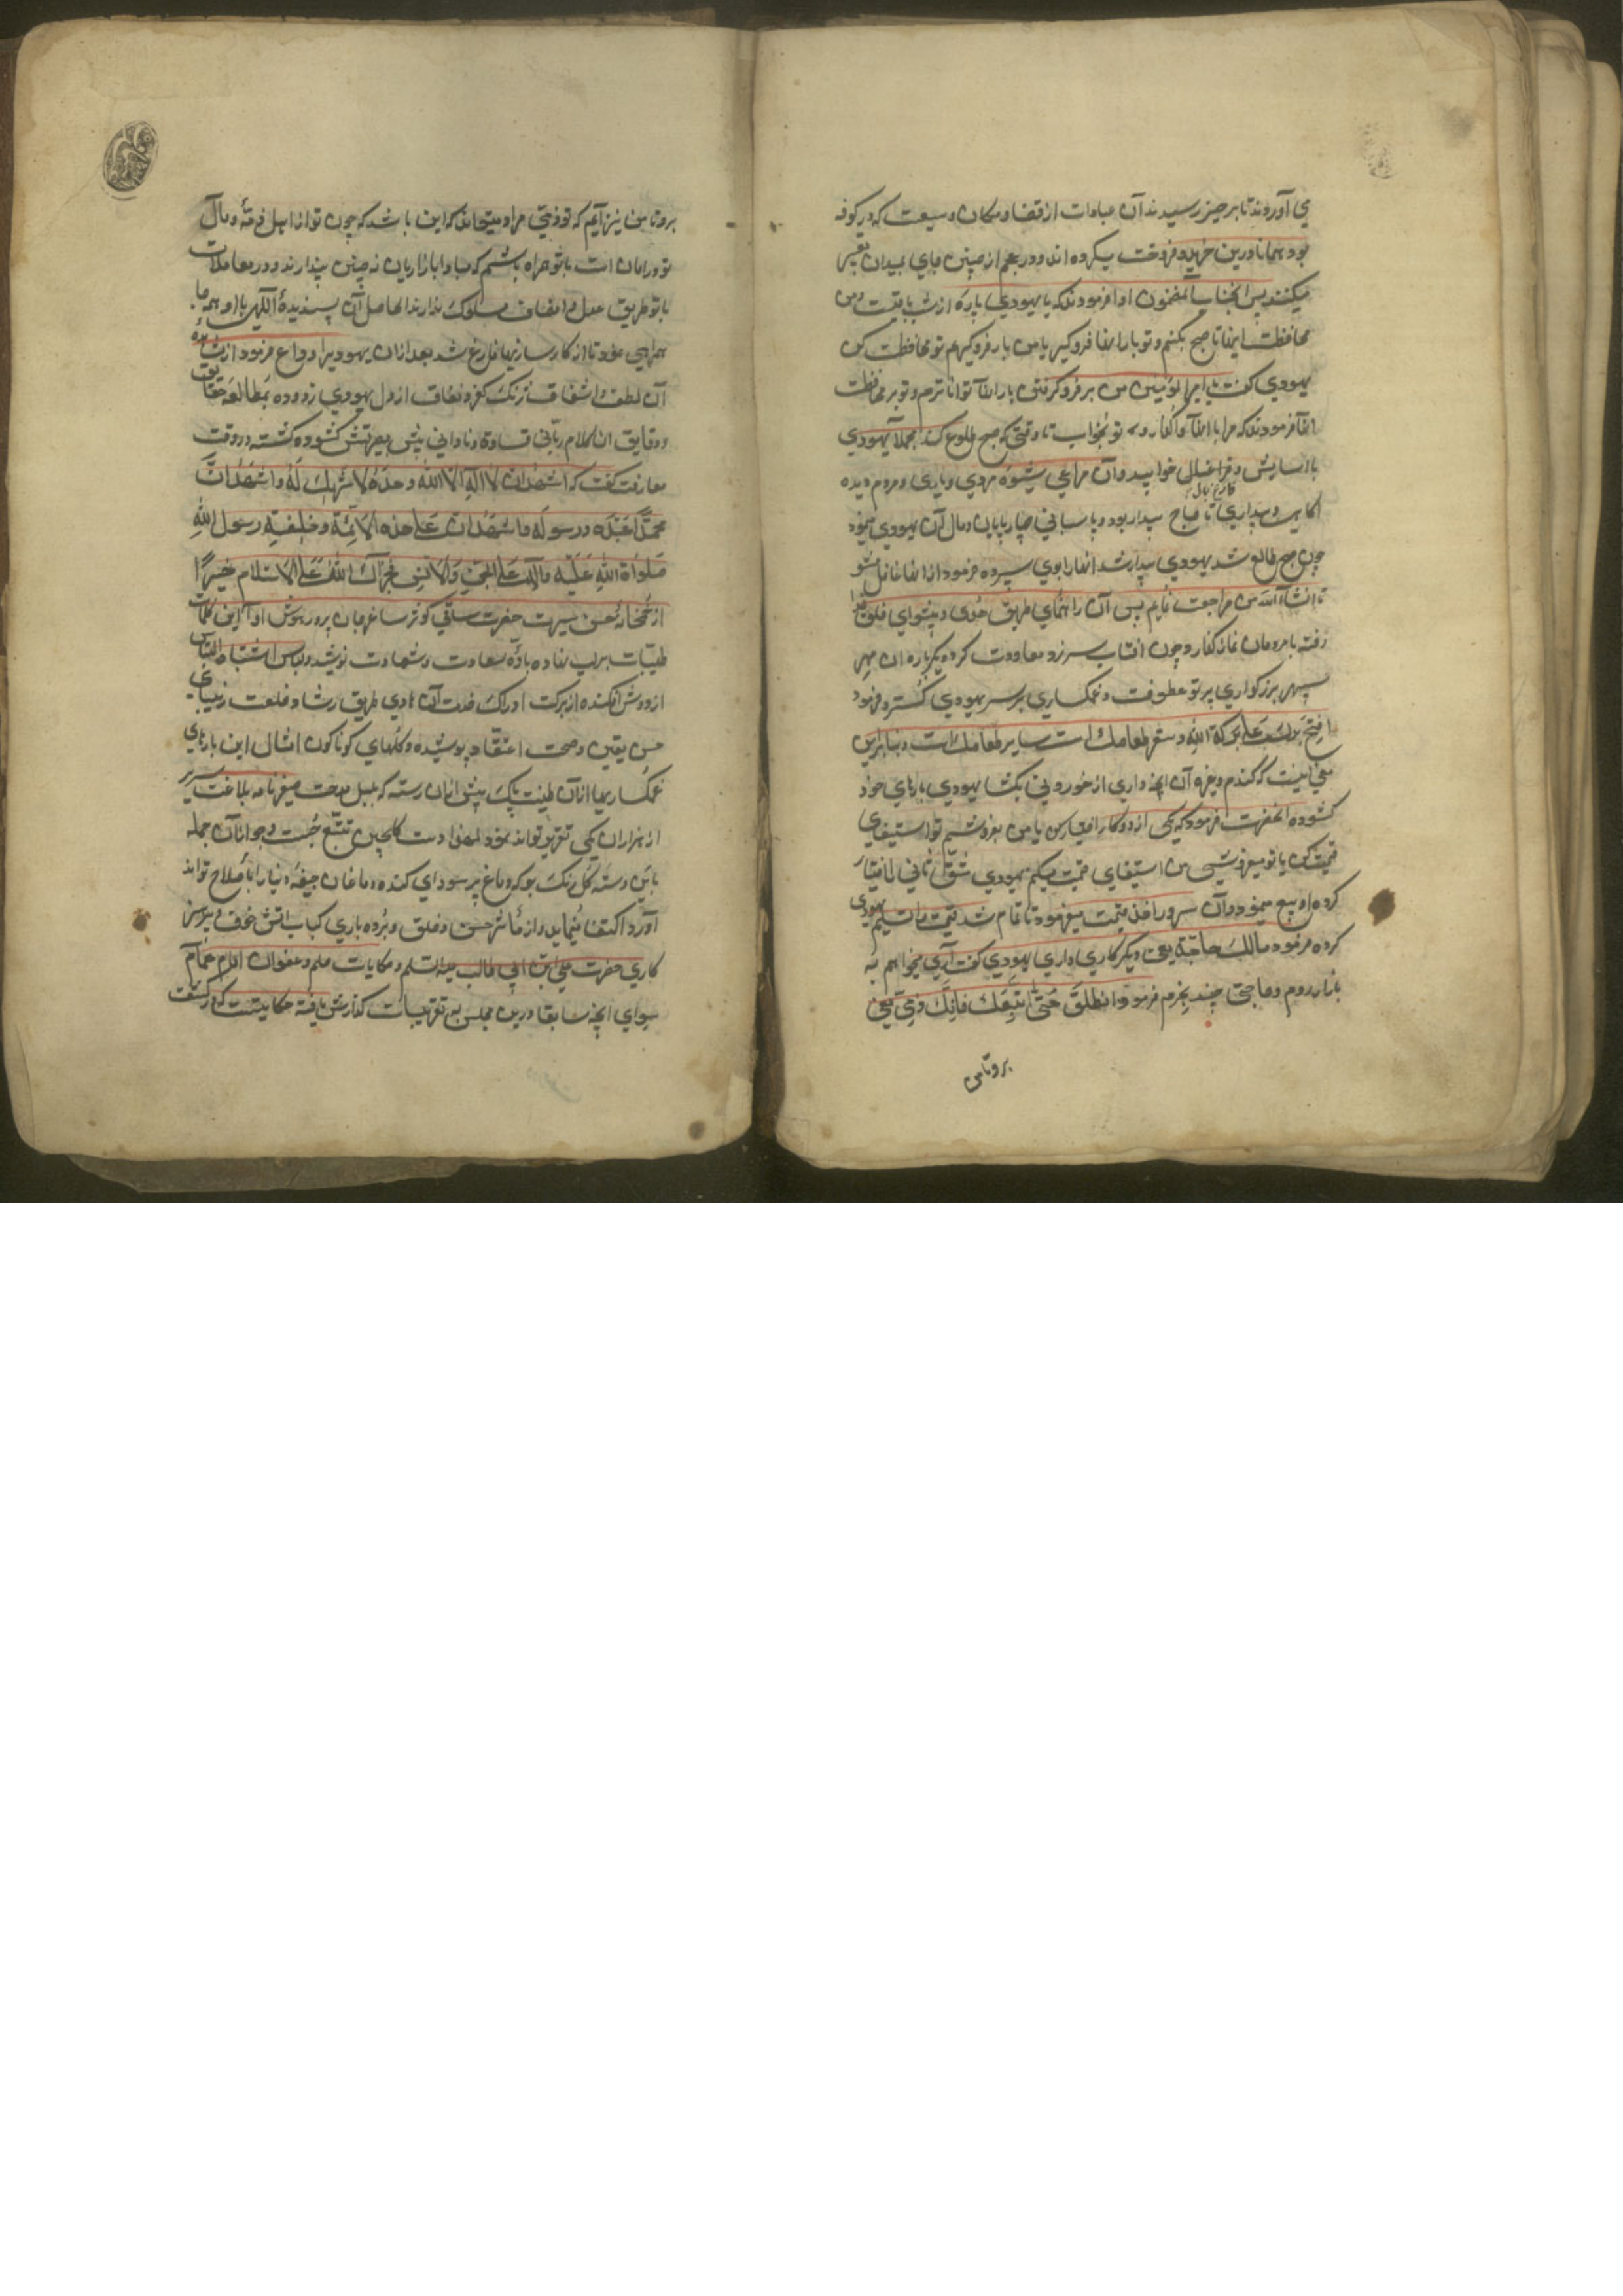 می آوردند تا بر حیز رسیدند آن عبارات از فضا و مکان وسیعست که در کوفه
بود همانا درین خرید و فروخت میکرده اند و در عجم از چنین جای بمیدان تعبیر
میکنند پس آنجناب بآلمضمون ادا فرمودند که یا یهودی پاره از شب باقیست و من
محافظت اینها تا صبح بکنم و تو بار اینها فرو گیر یا من بار فرو گیرم تو محافظت کن
یهودی گفت یا امیر المؤمنین من بر فرو گرفتن بار اینها تواناترم و تو بر محافظت
اینها فرمودند که مرا با اینها واگذار و تو بخواب تا وقتی که صبح طلوع کند مجملا یهودی
با آسایش و فراغبالی خوابید و آن مراعی شیوه مردی و یاری و مردم دیده
فارغ بال
آگاهی و بیداری تا صباح بیدار بود و پاسبانی چارپایان و مال آن یهودی مینمود
چون صبح طالع شد یهودی بیدار شد اینها را بوی سپرده فرمود از اینها غافل مشو
تا انشاء الله من مراجعت نمایم پس آن راهنمای طریق هدی و پیشوای خلق خدا
رفته با مردمان نماز گذارد و چون افتاب سر زد معاودت کرد و دیگر باره ان مهر
سپهر بزرگواری پرتو عطوفت و غمگساری بر سر یهودی گسترد و فرمود
افتح برک علی برکة الله و سعر طعامک است سایر طعامک است و بنابراین
معنی اینست که گندم و غیره آن آنچه داری از خوردنی بگشا یهودی بارهای خود
گشوده آنحضرت فرمود که یکی از دو کار اختیار کن یا من بفروشم تو استیفای
قیمت کن یا تو میفروشی من استیفای قیمت میکنم یهودی شق ثانی را اختیار
کرده او بیع مینمود و آن سرور اخذ قیمت میفرمود تا تمام شد قیمت را تسلیم یهودی
کرده فرمود مالک حاجة یعنی دیگر کاری داری یهودی گفت آری میخواهم به
بازار روم و حاجتی چند بخرم فرمود و انطلق حتی اتبعک فانک ذمی یعنی
برو تا من
برو تا من نیز آیم که تو ذمیی مراد میتواند که این باشد که چون تو از اهل ذمهٔ و مال
تو در امان است با تو همراه باشم که مبادا بازاریان نه چنین پندارند و در معاملات
با تو طریق عدل و انصاف مسلوک ندارند الحاصل آن پسندیدهٔ آلهی با او همه جا
همراهی نمود تا از کارسازیها فارغ شد بعد ازان یهودیرا وداع فرمود از مشاهده
آن لطف و اشفاق زنگ کفر و نفاق از دل یهودی زدوده بمطالعه حقایق
و دقایق ان کلام ربانی قساوة و نادانی پیش بصیرتش گشوده گشته در وقت
معارفت گفت که اشهد ان لا اله الا الله وحده لا شریک له و اشهد ان
محمدا عبده و رسوله و اشهد انک علی هذه الائمة و خلیفیة رسول الله
صلواة الله علیه و آله علی الجن و الانس فجزاک الله علی الاسلام خیرا
از خمخانه حسن سیرت حضرت ساقی کوثر ساغر جان پرور نوش ادا این کلمات
طیبات براب نهاده بادهٔ سعادت و شهادت نوشید و لباس اشتباه التباس
از دوش افکنده از برکت ادراک خدمت آن هادی طریق رشاد خلعت زیبای
حسن یقین و صحت اعتقاد پوشیده و گلهای گوناگون امثال این یاریهای
غمگساریها ازان طینت پاک بیش ازان رسته که بلبل مدحت صفیر نامه بلاغت سریر
از هزاران یکی تقریر تواند نمود لهذا دست گلچین تتبع جست و جو ازان جمله
باین دسته گل رنگ بو که دماغ پر سودای گنده دماغان جیفهٔ دنیا را باصلاح تواند
آورد اکتفا مینماید و از مآثر حسن و خلق و برده باری کباب اتش خوف
کاری حضرت علی ابن ابی طالب علیه السلم و حکایات حلم و عفو ان امام همام
سوای آنچه سابقا درین مجلس به تقریبات گذارش یافته حکایتیست که در کشف